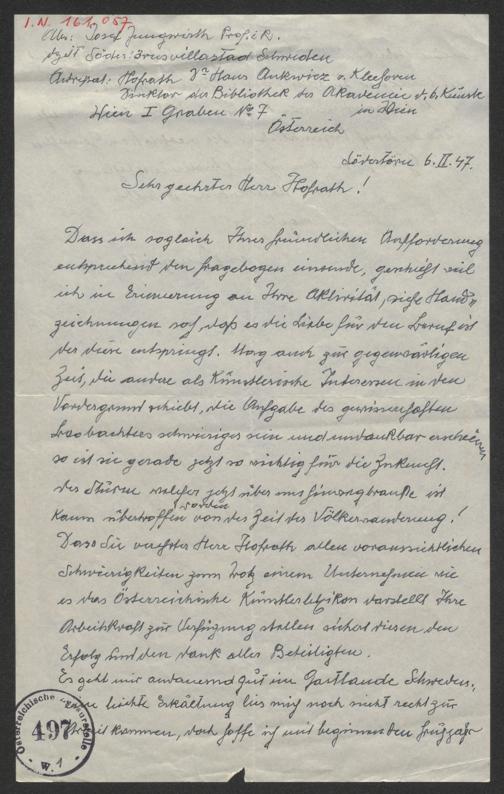 I.N. 161.057
Abs: Josef Jungwirth Prof. i.R.
dzeit Söder: Schweden
Adressat: Hofrath Dr Hans Ankwicz v. Kleehoven
Direktor der Bibliothek der Akademie d. b. Künste
Wien I Graben No 7 in Wien
Österreich
Södertörn 6.II.47.
Sehr geehrter Herr Hofrath!
Dass ich sogleich Ihrer freundlichen Aufforderung
entsprechend den Fragebogen einsende, geschieht weil
ich in Erinnerung an Ihre Aktivität, siehe Hand„
zeichnungen sah, daß es die Liebe für den Beruf ist
der diese entspringt. Mag auch zur gegenwärtigen
Zeit, die andere als Künstlerische Interessen in den
Vordergrund schiebt, die Aufgabe des gewissenhaften
Beobachters schwieriger sein und undankbar erscheinen
so ist sie gerade jetzt so wichtig für die Zukunft.
Der Sturm welcher jetzt über uns hinwegbrauste ist
kaum übertroffen worden von der Zeit der Völkerwanderung!
Dass Sie verehrter Herr Hofrath allen voraussichtlichen
Schwierigkeiten zum Trotz einem Unternehmen wie
es das Österreichische Künstlerlexikon darstellt Ihre
Arbeitskraft zur Verfügung stellen sichert diesem den
Erfolg und den Dank aller Beteiligten.
Es geht mir andauernd gut im Gastlande Schweden.,
eine leichte Erkältung lies mich noch nicht recht zur
Arbeit kommen, doch hoffe ich mit beginnendem Frühjahr
Österreichische
497
W. 1